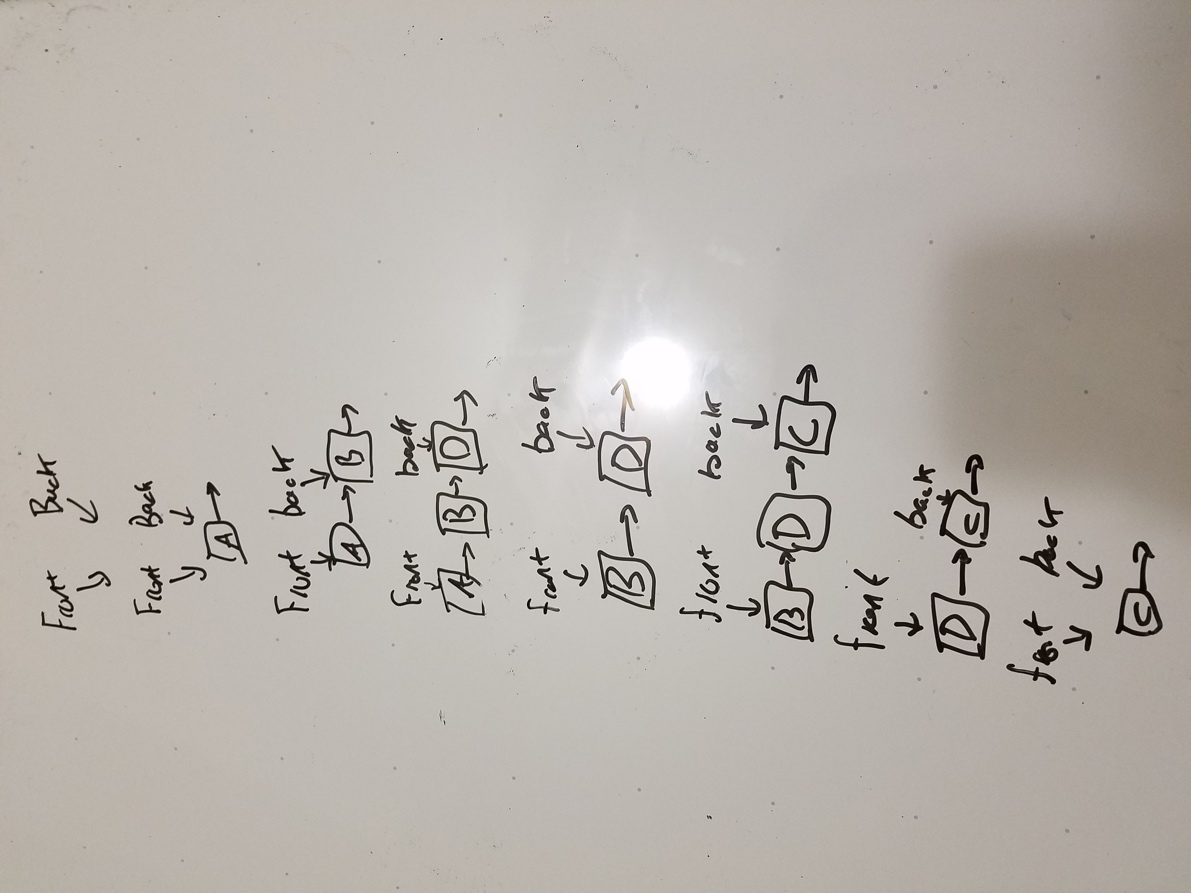 Front Back
Front Back
A
Front back
A B
Front back
A B D
front back
B D
front back
B D C
front back
D C
front back
C